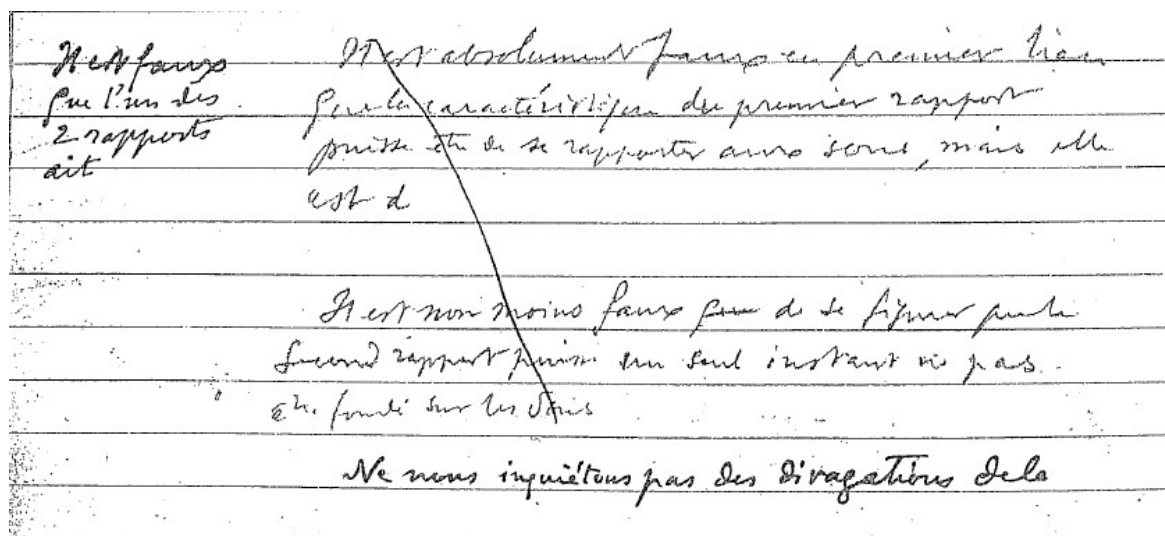 Il est faux
que l'un des
2 rapports
ait
Il est absolument faux en premier lieu
que la caractéristique du premier rapport
puisse être de se rapporter aux sons, mais elle
est d
Il est non moins faux que de se figurer que le
second rapport puisse un seul instant ne pas
être fondé sur les sons
Ne nous inquiétons pas des divagations de la